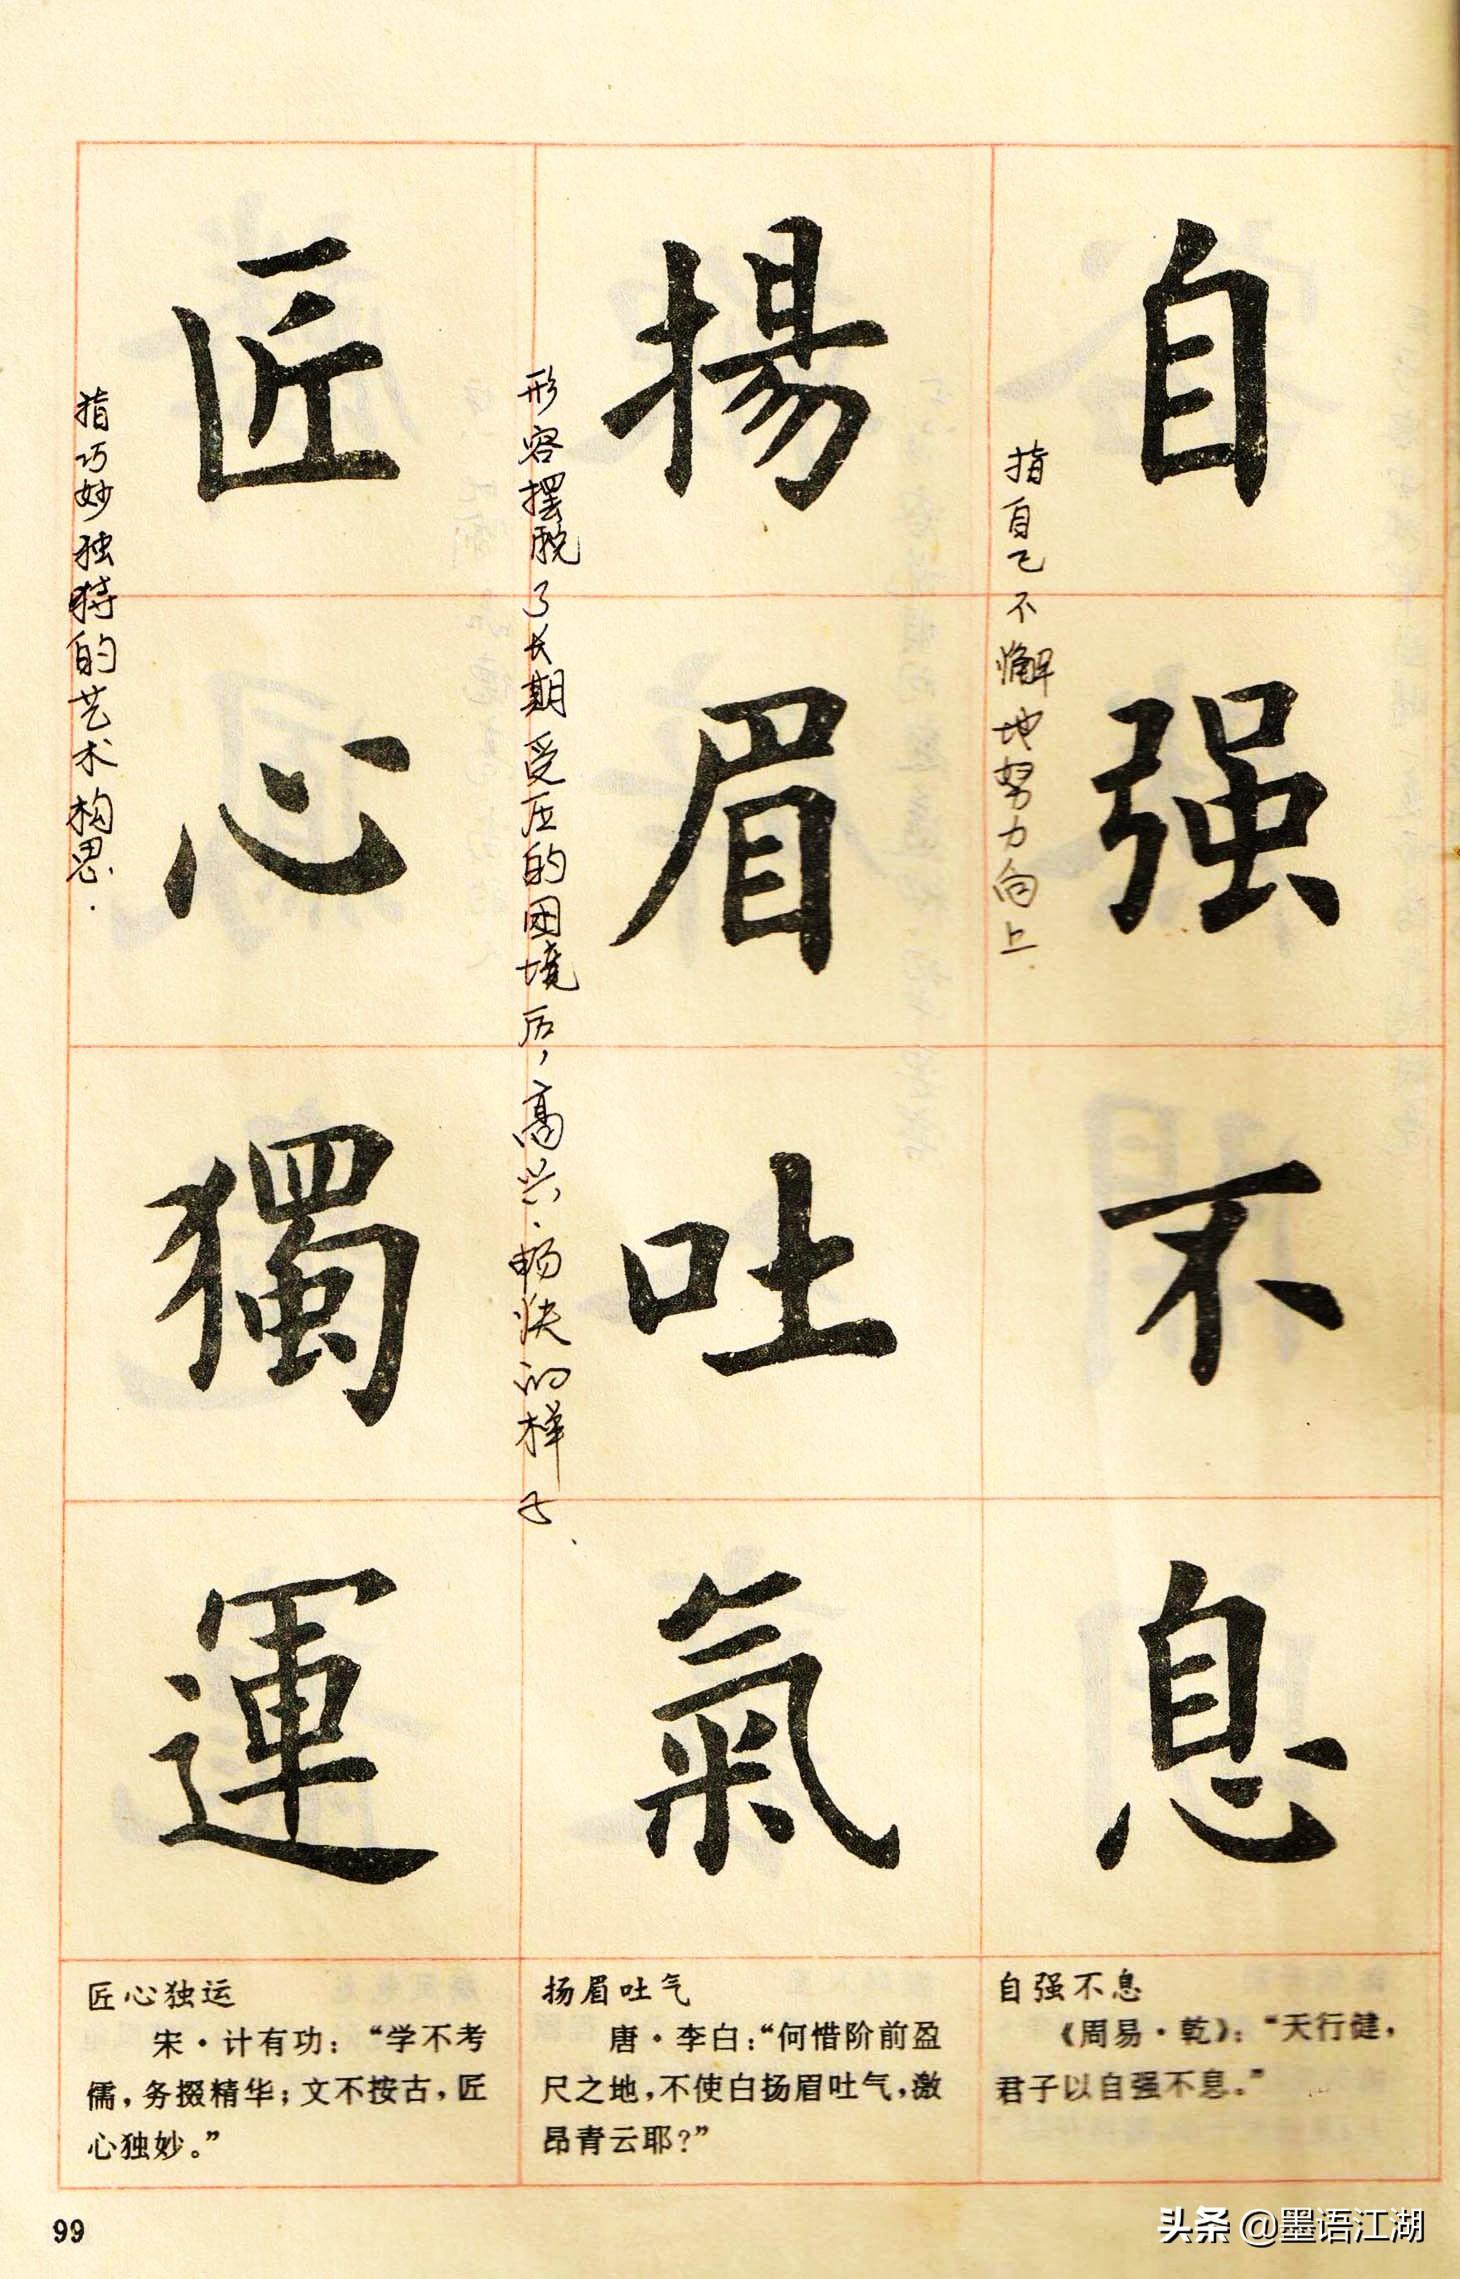 自强不息
指自己不懈地努力向上.
揚眉吐氣
形容摆脱了长期受压的困境后，高兴、畅快的样子、
匠心獨運
指巧妙独特的艺术构思.
自强不息
《周易·乾》：“天行健，
君子以自强不息。”
扬眉吐气
唐·李白：“何惜阶前盈
尺之地，不使白扬眉吐气，激
昂青云耶？”
匠心独运
宋·计有功：“学不考
儒，务掇精华；文不按古，匠
心独妙。”
99
头条 @墨语江湖